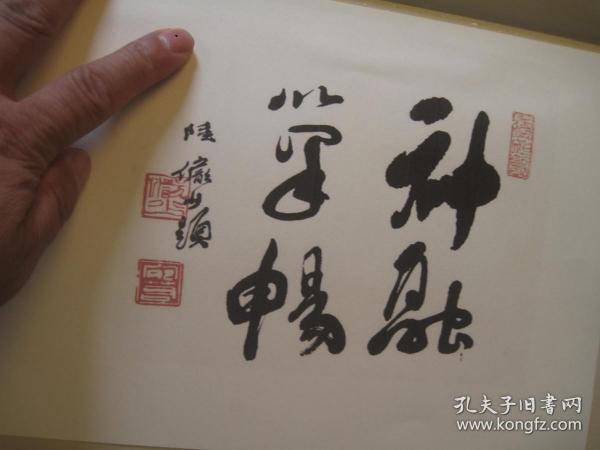 神融
筆暢
陸儼少題
孔夫子旧书网
www.kongfz.com